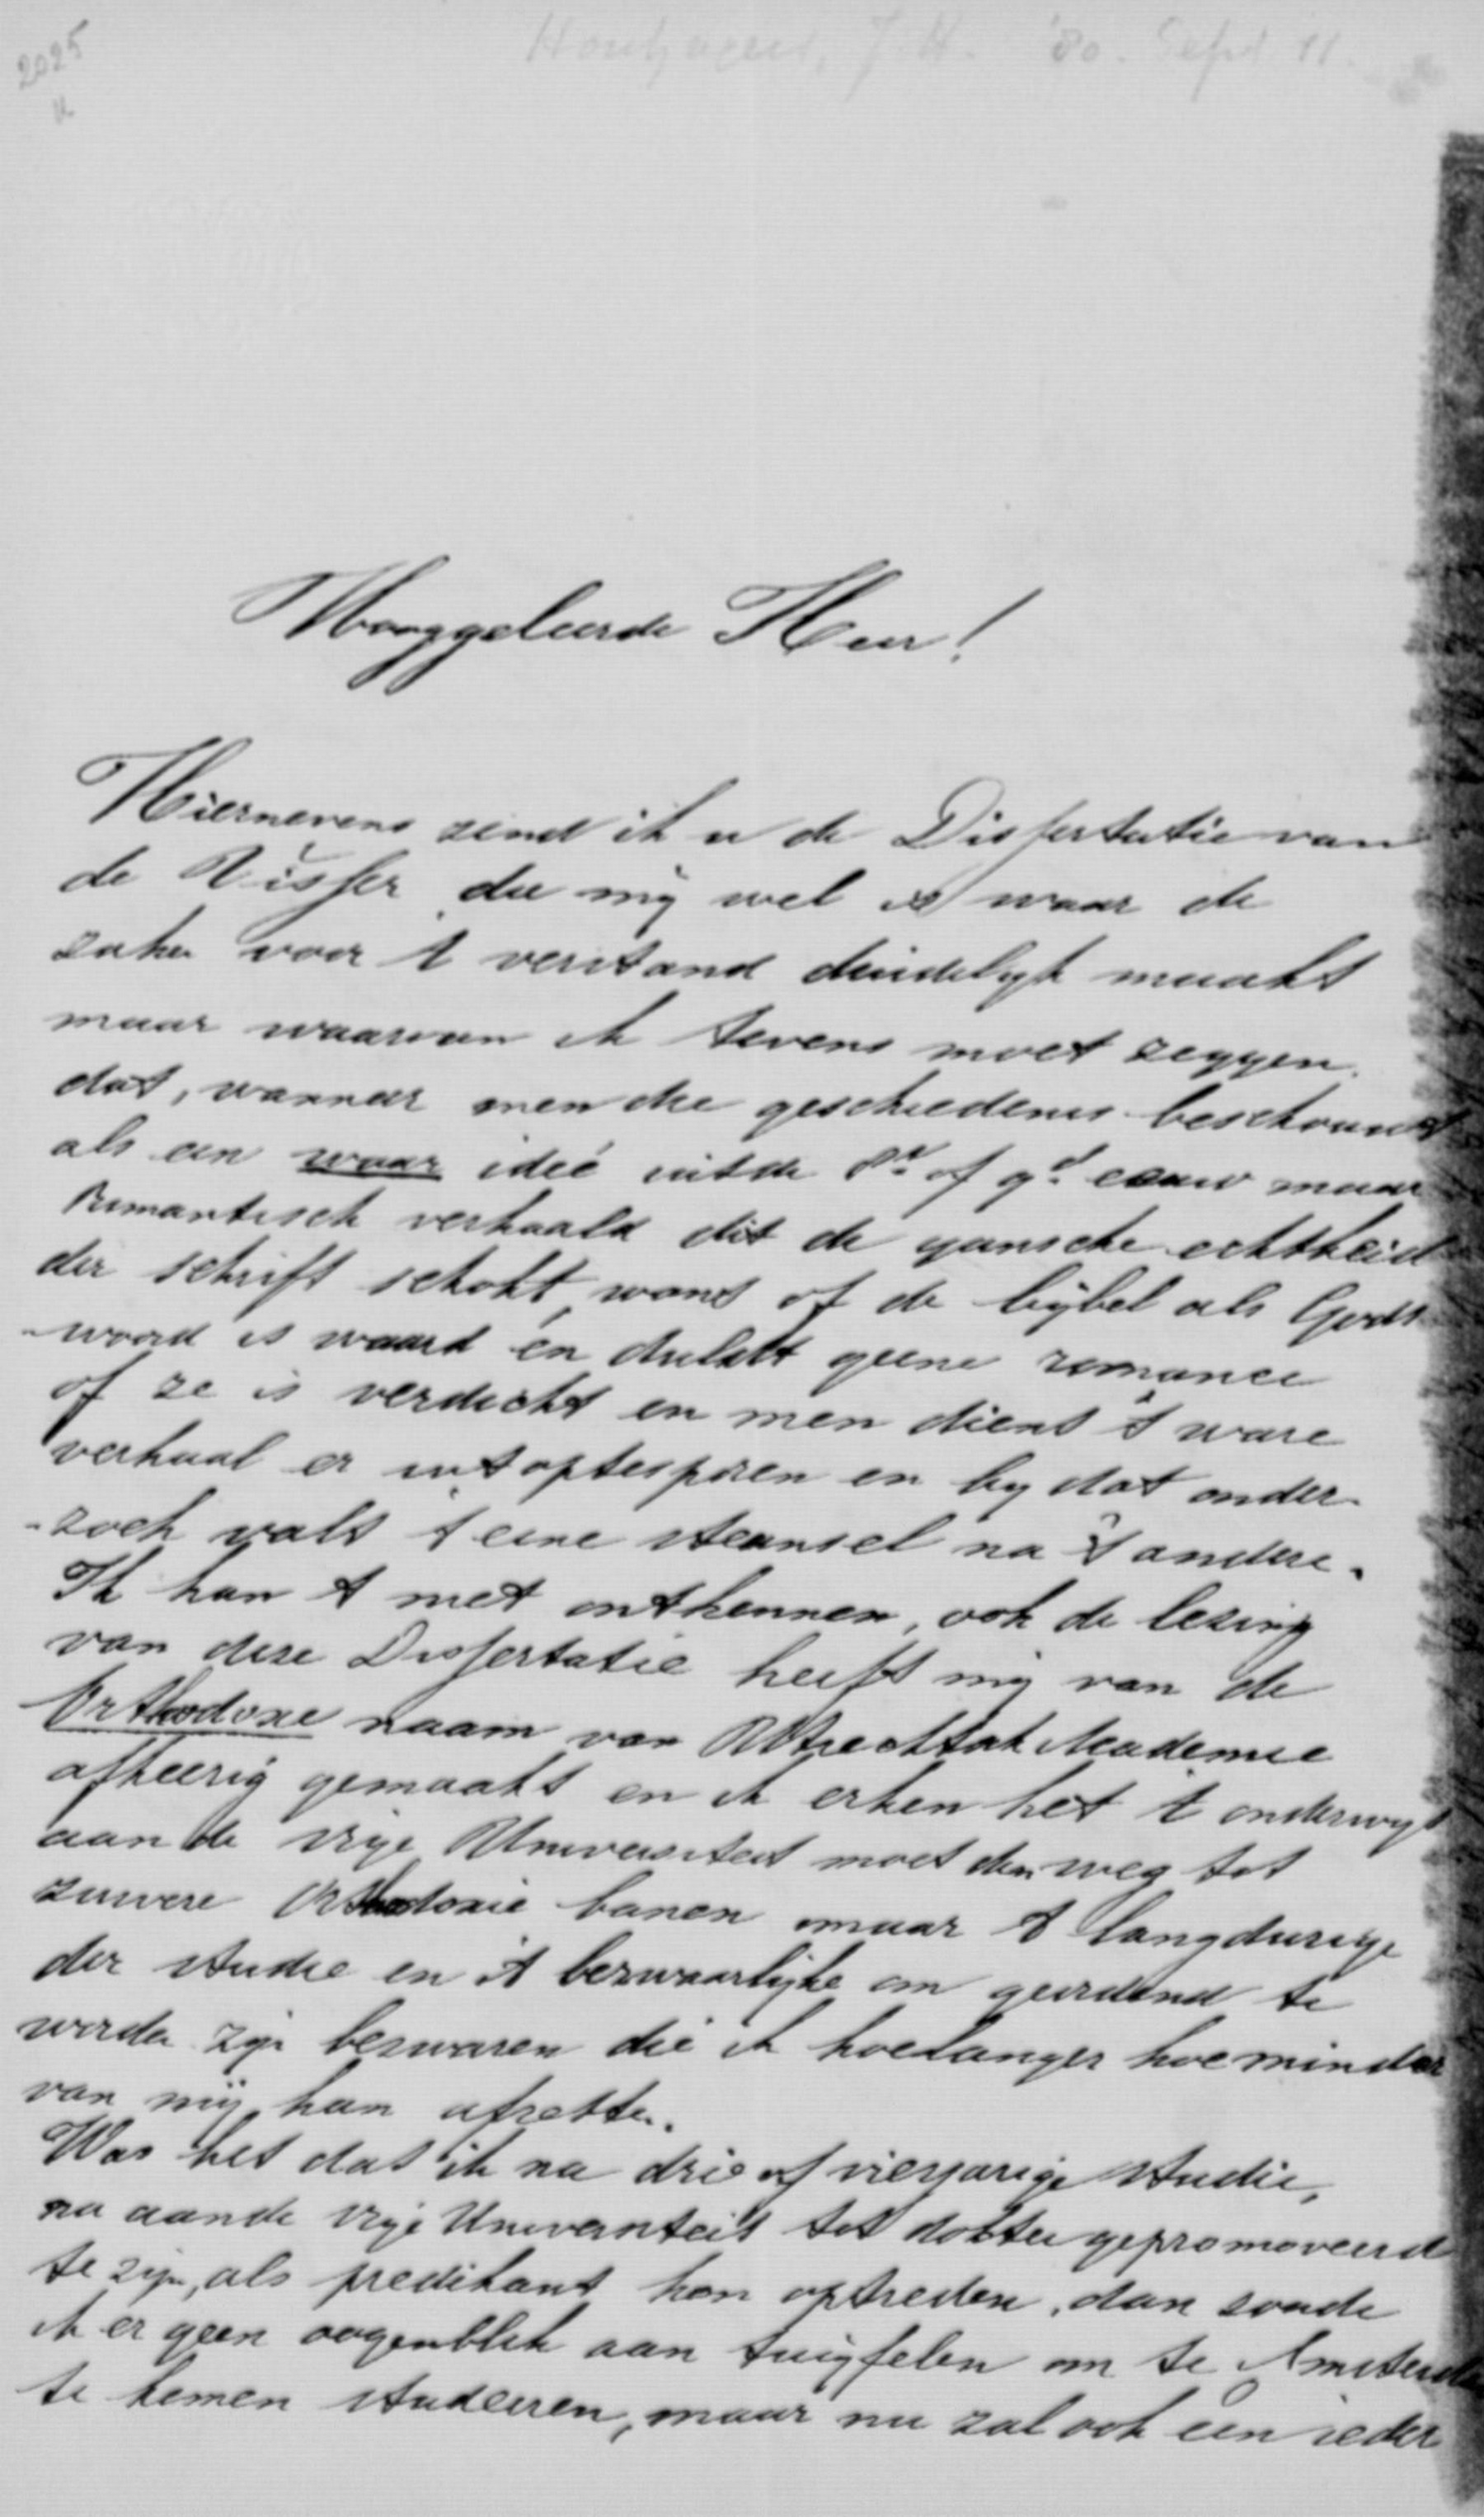 2025
J.H. '80. Sept. 11.
Hooggeleerde Heer!
Hiernevens zend ik u de Dissertatie van
de Visser die mij wel is waar de
zaken voor 't verstand duidelijk maakt
maar waarvan ik tevens moet zeggen.
dat, wanneer men die geschiedenis beschouwt
als een waar idée uit de 8e. of 9e. eeuw maar
romantisch verhaald dit de gansche echtheid
der schrift schokt, want of de bijbel als Gods
-woord is waard en duldt geene romance
of ze is verdicht en men dient 't ware
verhaal er uit optesporen en by dat onder-
-zoek valt 't eene steunsel na 't andere.
Ik kan 't niet ontkennen, ook de lezing
van deze Dissertatie heeft mij van de
Orthodoxe naam van Utrechtsch Academie
afkeerig gemaakt en ik erken het 't onderwijs
aan de vrije Universiteit moet den weg tot
zuivere Orthodoxie banen maar 't langdurige
der studie en 't bezwaarlijke om geordend te
worden zijn bezwaren die ik hoelanger hoe minder
van mij kan afzetten.
Was het dat ik na drie of vierjarige studie,
na aan de Vrije Universiteit tot dokter gepromoveerd
te zijn, als predikant kon optreden, dan zoude
ik er geen oogenblik aan twijfelen om te Amsterdam
te komen studeeren, maar nu zal ook een ieder